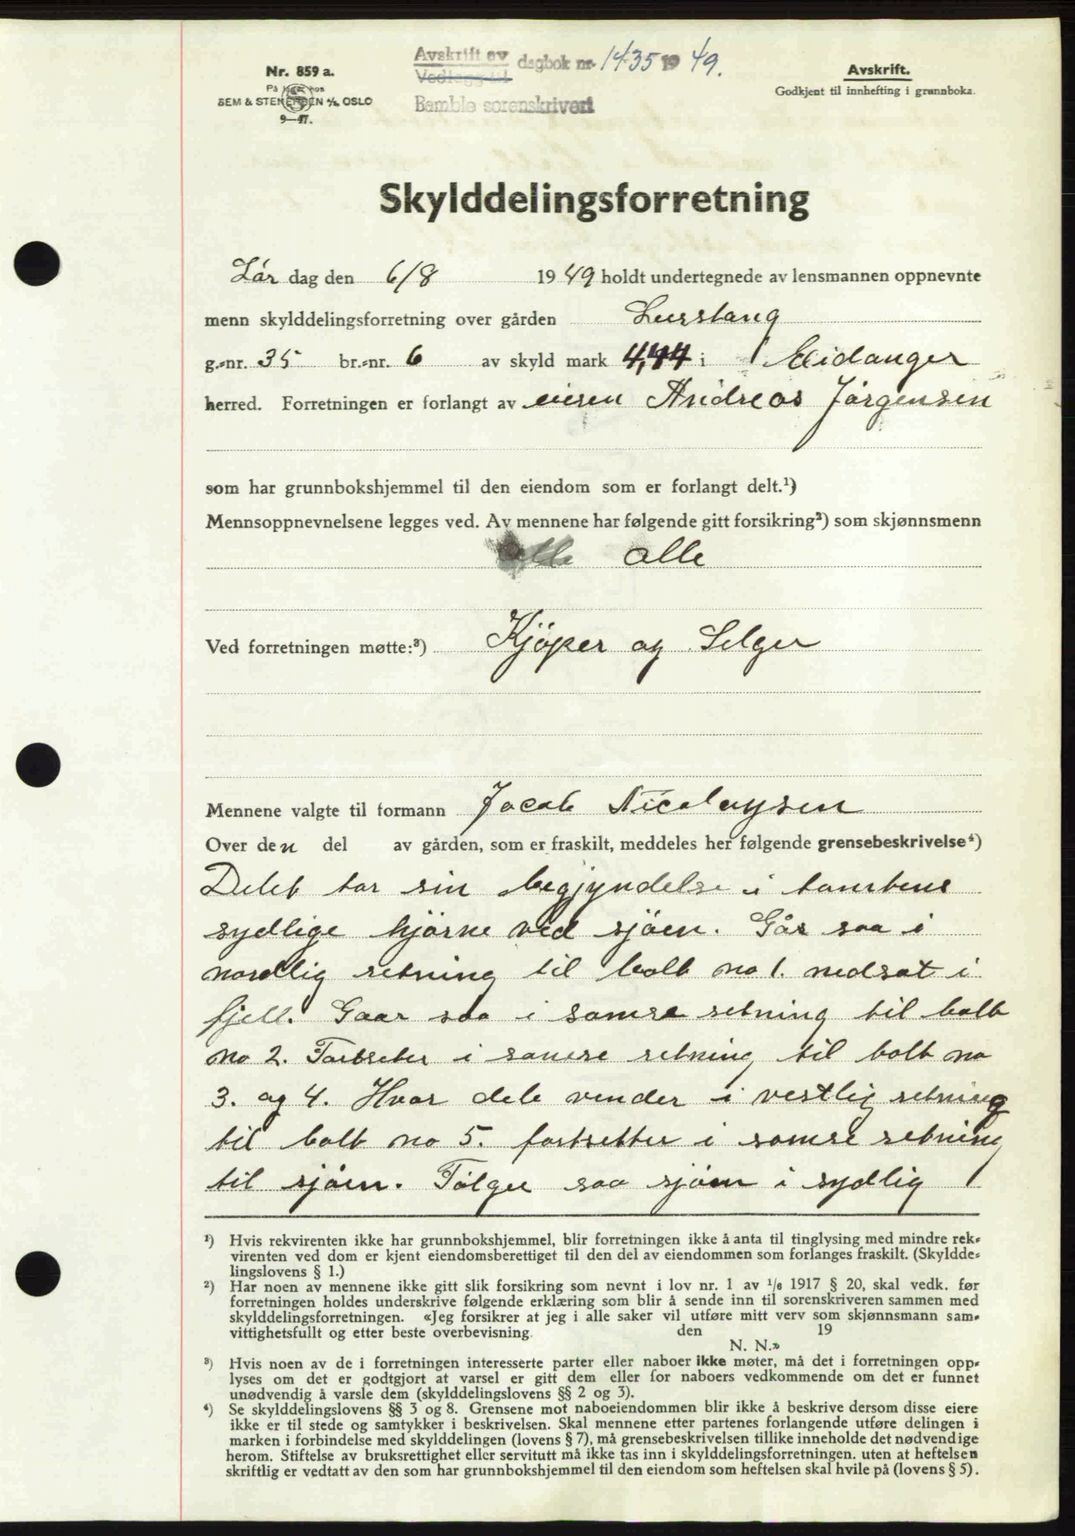 Nr. 859 a.
På lager hos
SEM & STENERSEN A/S, OSLO
9—47.
Avskrift av dagbok nr. 1435 1949.
Vedlegg til
Bamble sorenskriveri
Avskrift.
Godkjent til innhefting i grunnboka.
Skylddelingsforretning
Lör dag den 6/8 1949 holdt undertegnede av lensmannen oppnevnte
menn skylddelingsforretning over gården
g.-nr. 35 br.-nr. 6 av skyld mark 4,44 i Eidanger
herred. Forretningen er forlangt av eieren Andreas Jörgensen
som har grunnbokshjemmel til den eiendom som er forlangt delt.¹)
Mennsoppnevnelsene legges ved. Av mennene har følgende gitt forsikring²) som skjønnsmenn
alle
Ved forretningen møtte:³) Kjöper og Selger
Mennene valgte til formann Jacob Nicolaysen
Over den del av gården, som er fraskilt, meddeles her følgende grensebeskrivelse⁴)
Delet tar sin begjyndelse i tomtens
sydlige hjörne ved sjöen. Går saa i
nordlig retning til bolt no 1. nedsat i
fjell. Gaar saa i samme retning til bolt
no 2. Fortseter i samme retning til bolt no
3. og 4. Hvor dele vender i vestlig retning
til bolt no 5. fortsetter i samme retning
til sjöen. Fölger saa sjöen i sydlig
¹) Hvis rekvirenten ikke har grunnbokshjemmel, blir forretningen ikke å anta til tinglysing med mindre rek-
virenten ved dom er kjent eiendomsberettiget til den del av eiendommen som forlanges fraskilt. (Skyldde-
lingslovens § 1.)
²) Har noen av mennene ikke gitt slik forsikring som nevnt i lov nr. 1 av 1/6 1917 § 20, skal vedk. før
forretningen holdes underskrive følgende erklæring som blir å sende inn til sorenskriveren sammen med
skylddelingsforretningen. «Jeg forsikrer at jeg i alle saker vil utføre mitt verv som skjønnsmann sam-
vittighetsfullt og etter beste overbevisning. den 19
N. N.»
³) Hvis noen av de i forretningen interesserte parter eller naboer ikke møter, må det i forretningen opp-
lyses om det er godtgjort at varsel er gitt dem eller for naboers vedkommende om det er funnet
unødvendig å varsle dem (skylddelingslovens §§ 2 og 3).
⁴) Se skylddelingslovens §§ 3 og 8. Grensene mot naboeiendommen blir ikke å beskrive dersom disse eiere
ikke er til stede og samtykker i beskrivelsen. Skal mennene etter partenes forlangende utføre delingen i
marken i forbindelse med skylddelingen (lovens § 7), må grensebeskrivelsen tillike inneholde det nødvendige
herom. Stiftelse av bruksrettighet eller servitutt må ikke tas inn i skylddelingsforretningen, uten at heftelsen
skriftlig er vedtatt av den som har grunnbokshjemmel til den eiendom som heftelsen skal hvile på (lovens § 5).